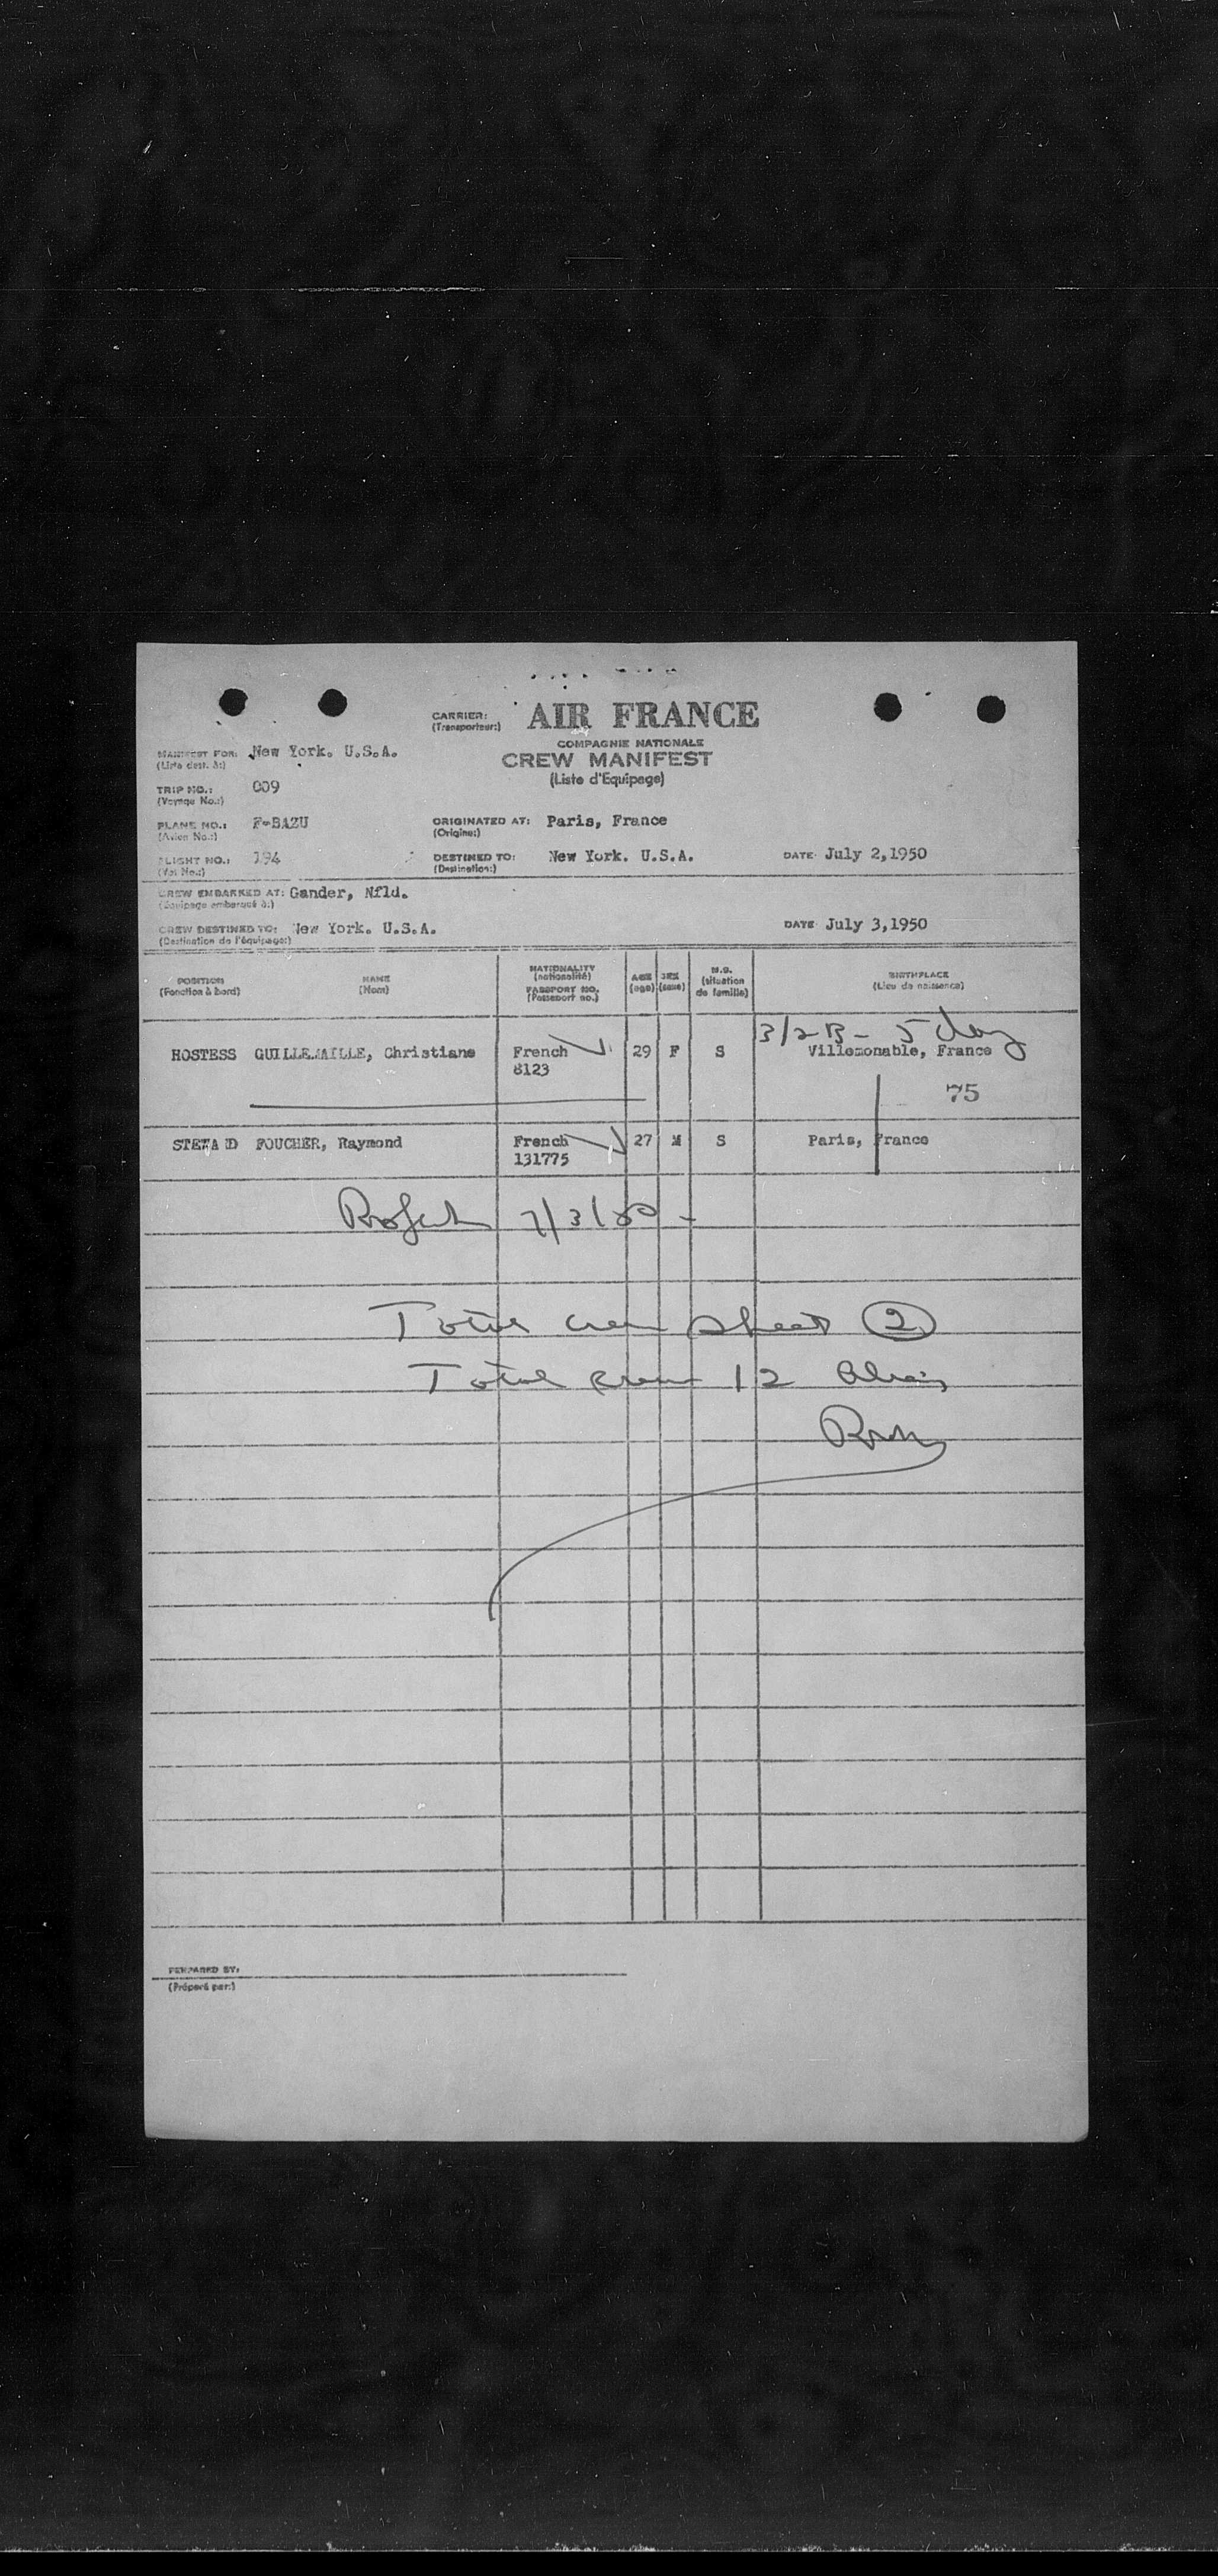 CARRIER: AIR FRANCE
(Transporteur:)
COMPAGNIE NATIONALE
MANIFEST FOR: New York. U.S.A.
(Liste dest. à:)
CREW MANIFEST
(Liste d'Equipage)
TRIP NO.: 009
(Voyage No.:)
PLANE NO.: F-BAZU
(Avion No.:)
ORIGINATED AT: Paris, France
(Origine:)
FLIGHT NO.: 194
(Vol No.:)
DESTINED TO: New York. U.S.A.
(Destination:)
DATE: July 2,1950
CREW EMBARKED AT: Gander, Nfld.
(Equipage embarqué à:)
CREW DESTINED TO: New York. U.S.A.
(Destination de l'équipage:)
DATE: July 3,1950
POSITION
(Fonction à bord)
NAME
(Nom)
NATIONALITY
(nationalité)
PASSPORT NO.
(Passeport no.)
AGE
(age)
SEX
(sexe)
M.S.
(situation
de famille)
BIRTHPLACE
(Lieu de naissance)
3/2 B - 5 day
HOSTESS , Christiane French 29 F S , France
8123
75
STEWARD FOUCHER, Raymond French 27 M S Paris, France
131775
7/3/50 -
Total crew sheet 2
Total crew 12
PREPARED BY:
(Préparé par:)